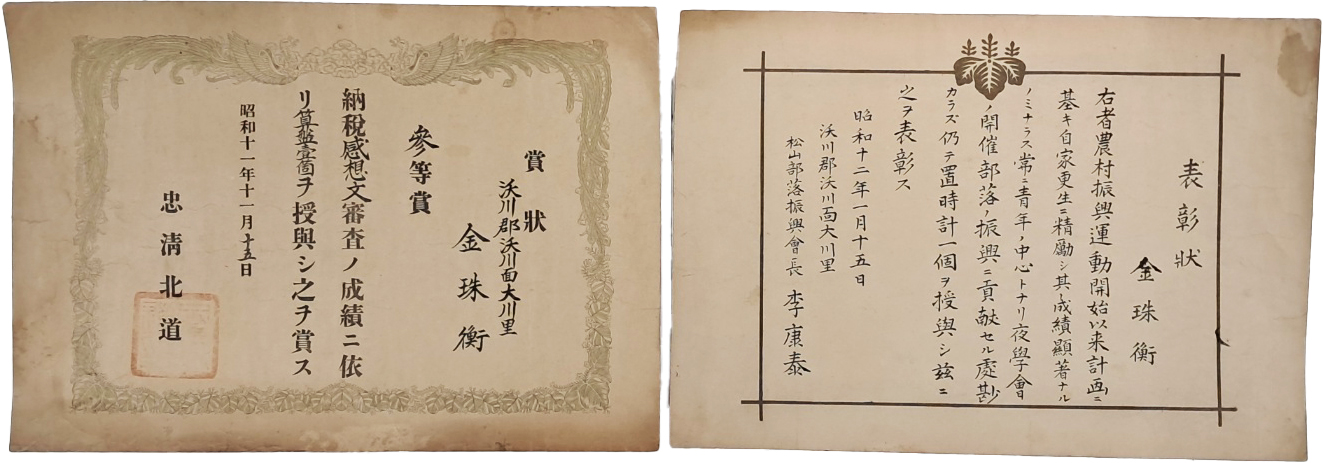 賞狀
沃川郡沃川面大川里
金珠衡
參等賞
納稅感想文審査ノ成績ニ依
リ算盤壹箇ヲ授與シ之ヲ賞ス
昭和十一年十一月十五日
忠淸北道
表彰狀
金珠衡
右者農村振興運動開始以来計画ニ
基キ自家更生ニ精勵シ其ノ成績顯著ナル
ノミナラス常ニ青年ノ中心トナリ夜學會
ノ開催部落ノ振興ニ貢献セル處尠
カラズ仍テ置時計一個ヲ授與シ玆ニ
之ヲ表彰ス
昭和十二年一月十五日
沃川郡沃川面大川里
松山部落振興會長 李康泰